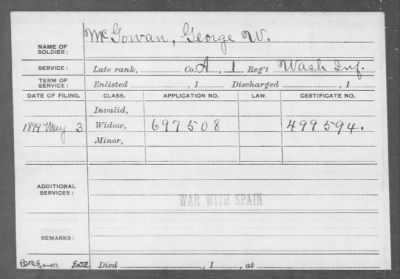 NAME OF SOLDIER: McGowan, George W.
SERVICE: Late rank, Co. A, 1 Reg't Wash Inf.
TERM OF SERVICE: Enlisted , 1 Discharged , 1
DATE OF FILING. CLASS. APPLICATION NO. LAW. CERTIFICATE NO.
Invalid,
1899 May 3 Widow, 697508 499594.
Minor,
ADDITIONAL SERVICES:
WAR WITH SPAIN
REMARKS:
Died , 1 , at